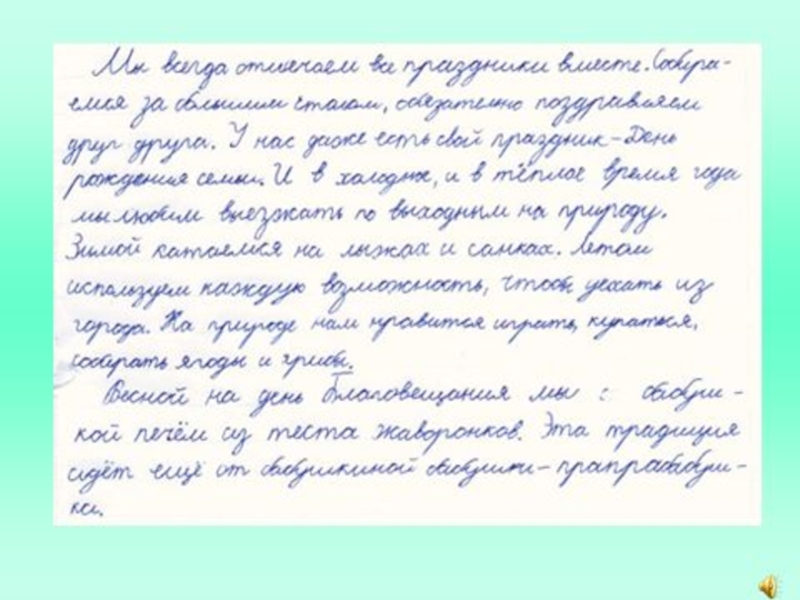 Мы всегда отмечаем все праздники вместе. Собира-
емся за большим столом, обязательно поздравляем
друг друга. У нас даже есть свой праздник - День
рождения семьи. И в холодное, и в тёплое время года
мы любим выезжать по выходным на природу.
Зимой катаемся на лыжах и санках. Летом
используем каждую возможность, чтобы уехать из
города. На природе нам нравится играть, купаться,
собирать ягоды и грибы.
Весной на день Благовещания мы с бабуш-
кой печём из теста жаворонков. Эта традиция
идёт ещё от бабушкиной бабушки - прапрабабуш-
ки.